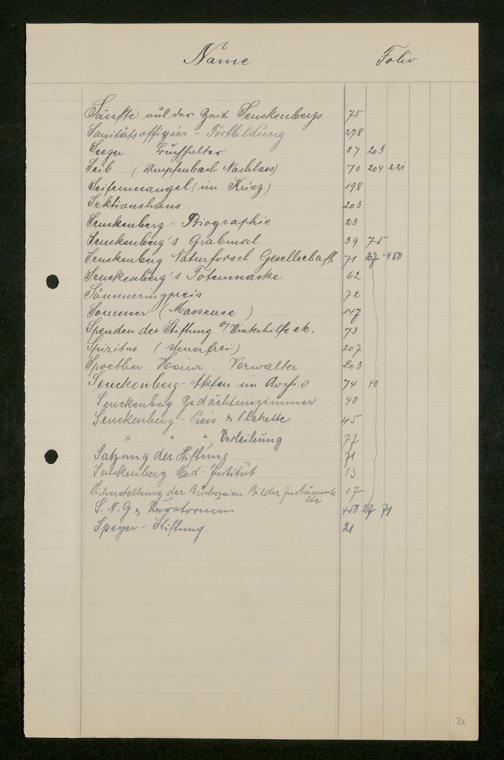 Name Folio
Sänfte aus der Zeit Senckenbergs 75
Sanitätsoffizier - Fortbildung 278
Seeger Buchhalter 87 203
Seib (Umpfenbach Nachlass) 70 204 221
Seifenmangel (im Krieg) 198
Sektionshaus 203
Senckenberg - Biographie 23
Senckenberg's Grabmal 39 75
Senckenberg Naturforsch Gesellschaft 71 27 450
Senckenberg's Totenmaske 62
Sömmeringpreis 72
Sommer (Masseuse) 147
Spenden der Stiftung Winterhilfe etc. 73
Spiritus (steuerfrei) 207
Spoethe Heinr Verwalter 203
Senckenberg-Akten im Archiv 74 40
Senckenberg Gedächtniszimmer 40
Senckenberg-Preis & Plakette 45
" " " Verleihung 77
Satzung der Stiftung 71
Senckenberg Med-Institut 83
der Bücher Bilder Instrumente etc 17
S.N.G & Kuratorium 450 27 71
Speyer-Stiftung 21
21